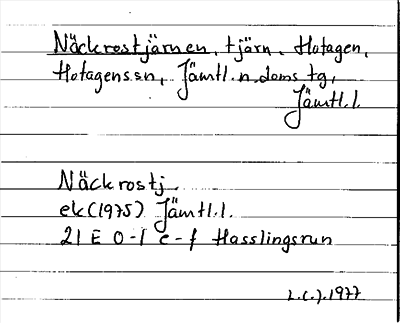 Näckrostjärnen, tjärn. Hotagen,
Hotagens sn, Jämtl. n. doms tg,
Jämtl.l.
Näckrostj.
ek(1975) Jämtl.l.
21 E 0-1 e-f Hasslingsrun
L.C.J. 1977